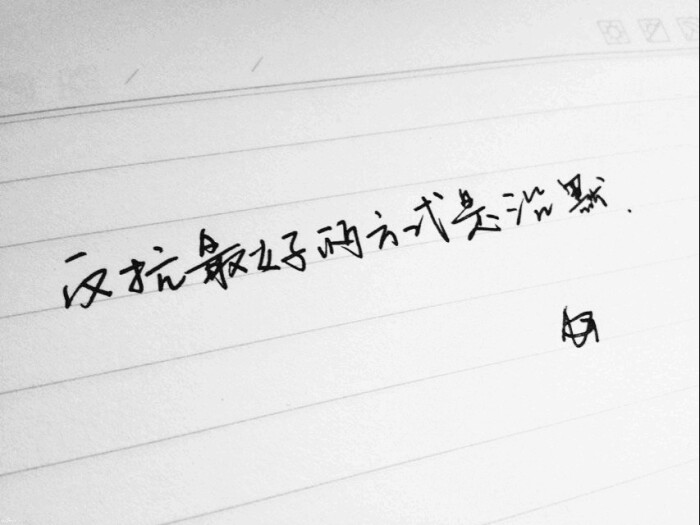 反抗最好的方式是沉默.